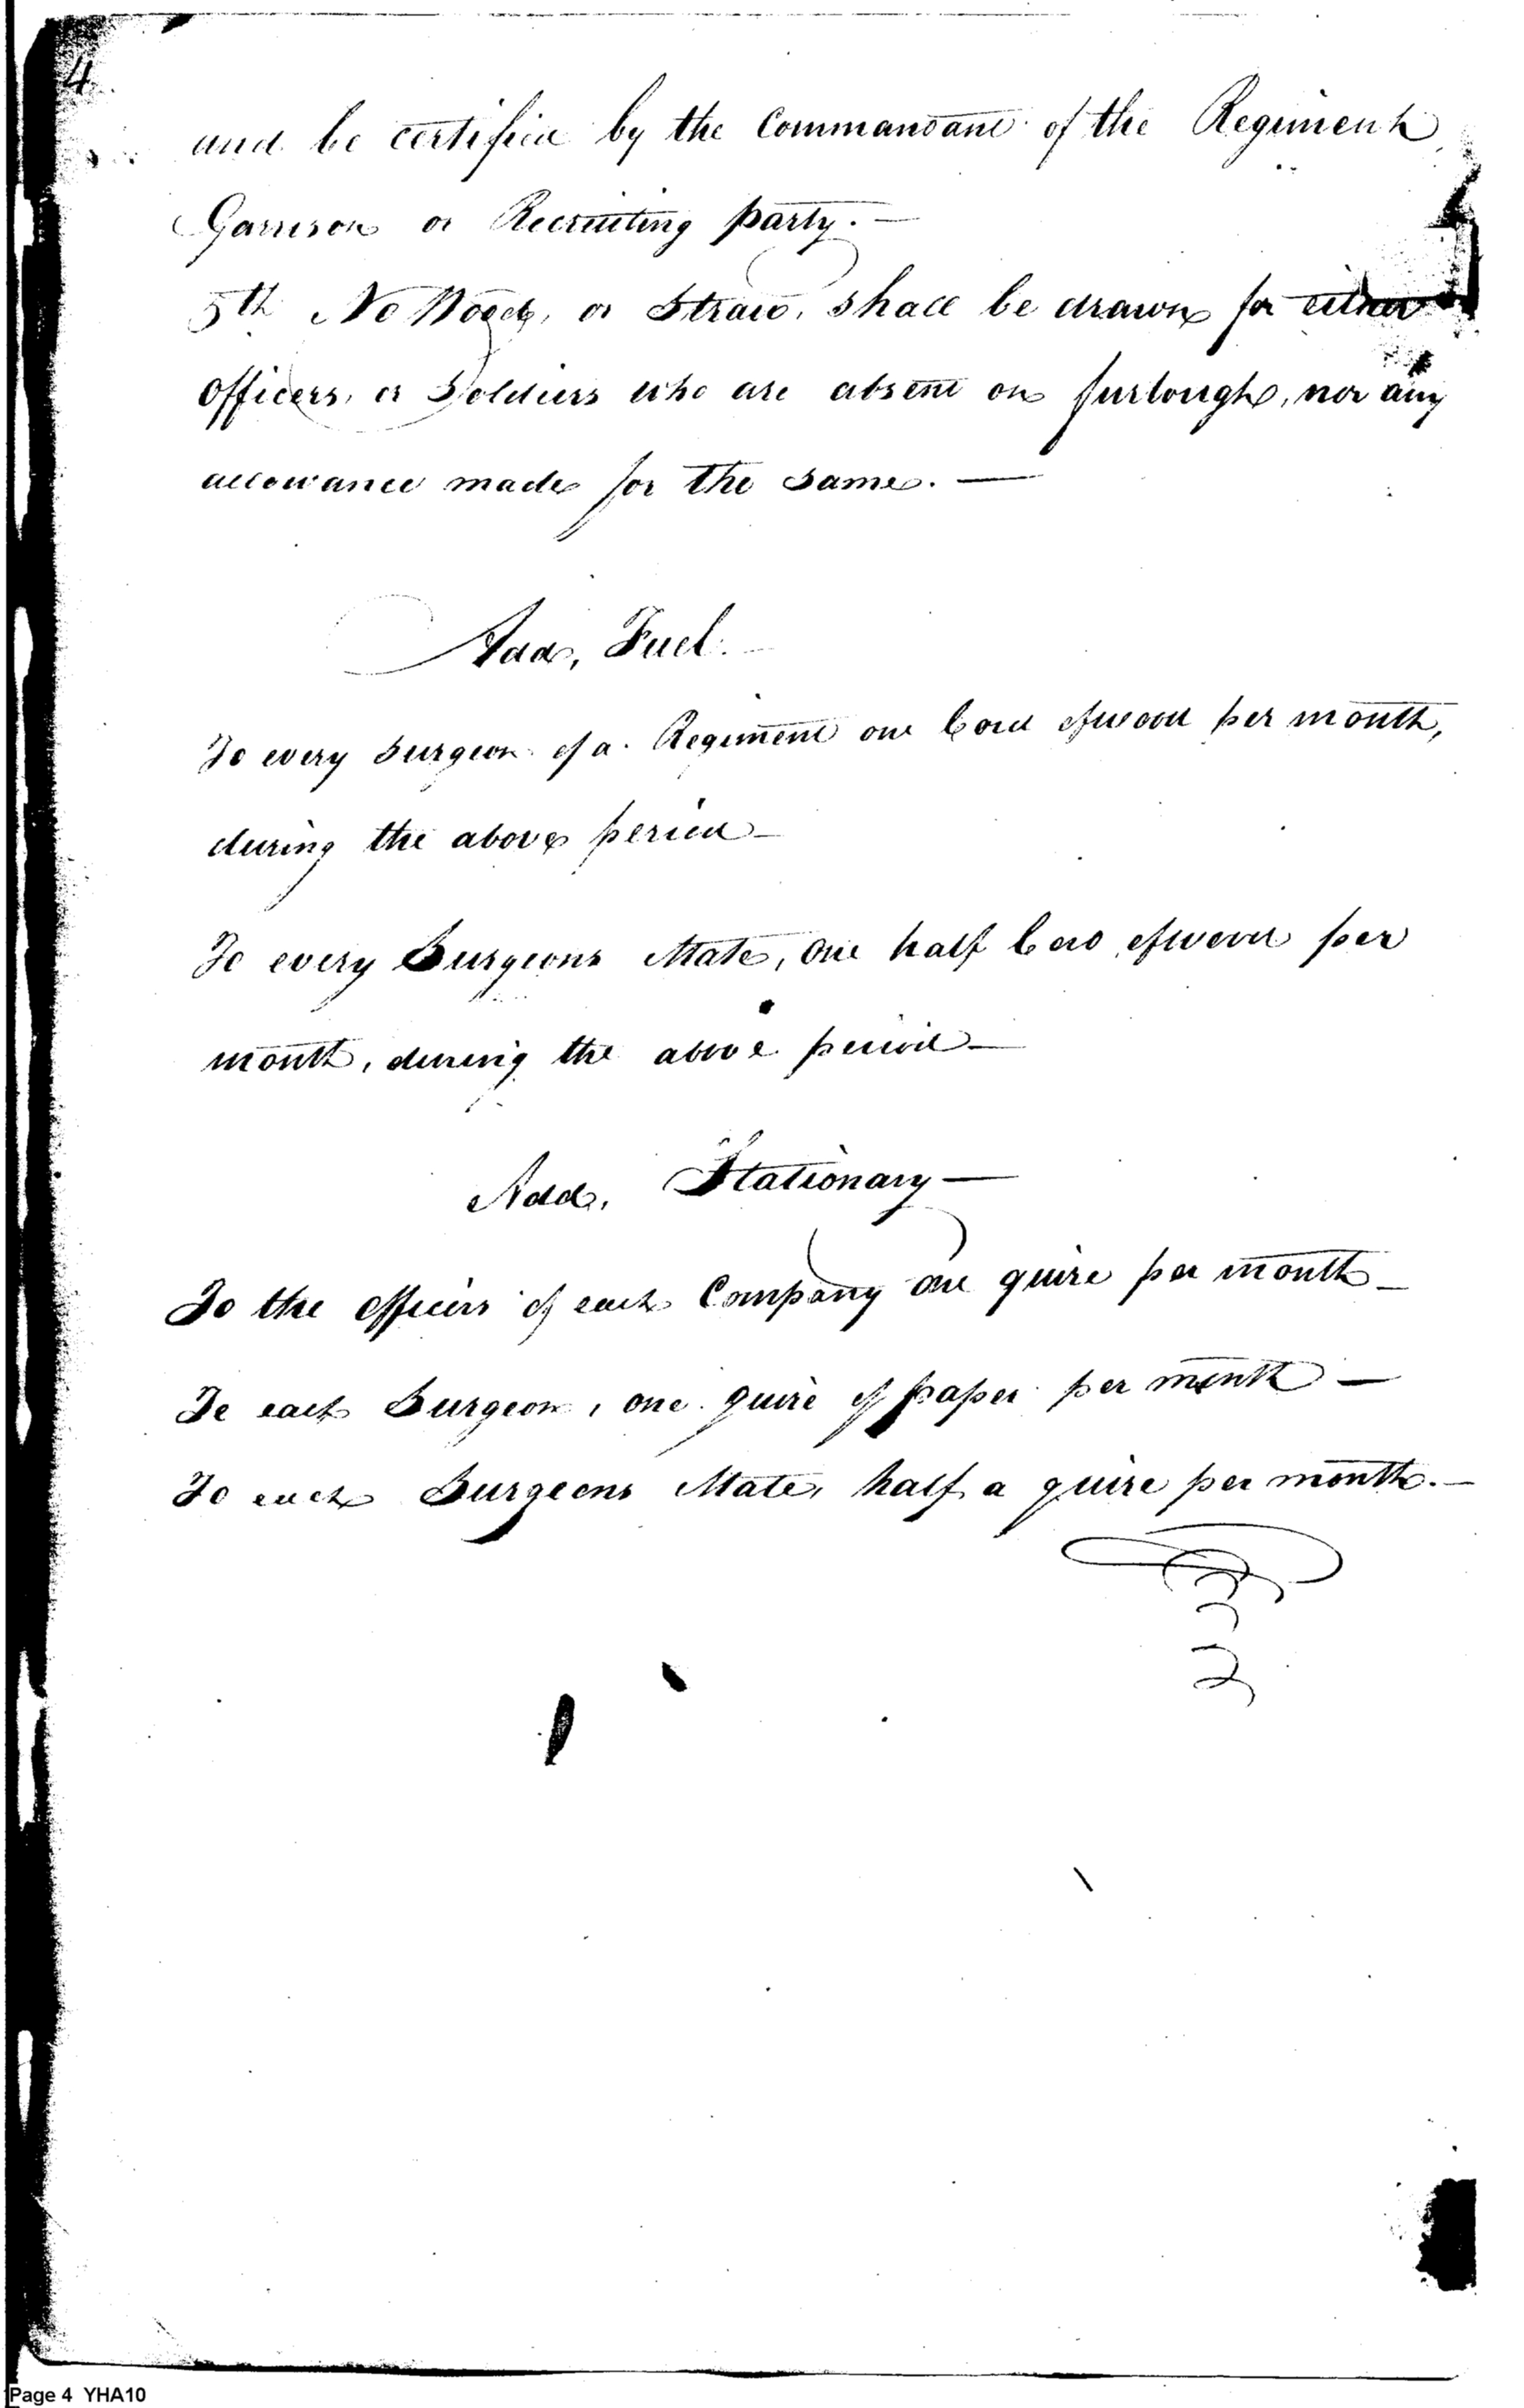 4
and be certified by the Commandant of the Regiment
Garrison or Recruiting party. —
5th No Wood, or Straw, shall be drawn for either
Officers, or Soldiers who are absent on furlough, nor any
allowance made for the same. —
Add, Fuel. —
To every Surgeon of a Regiment one Cord of wood per month,
during the above period —
To every Surgeons Mate, One half Cord of wood per
month, during the above period —
Add, Stationary —
To the Officers of each Company one quire per month —
To each Surgeon, one quire of paper per month —
To each Surgeons Mate, half a quire per month. —
Page 4 YHA10